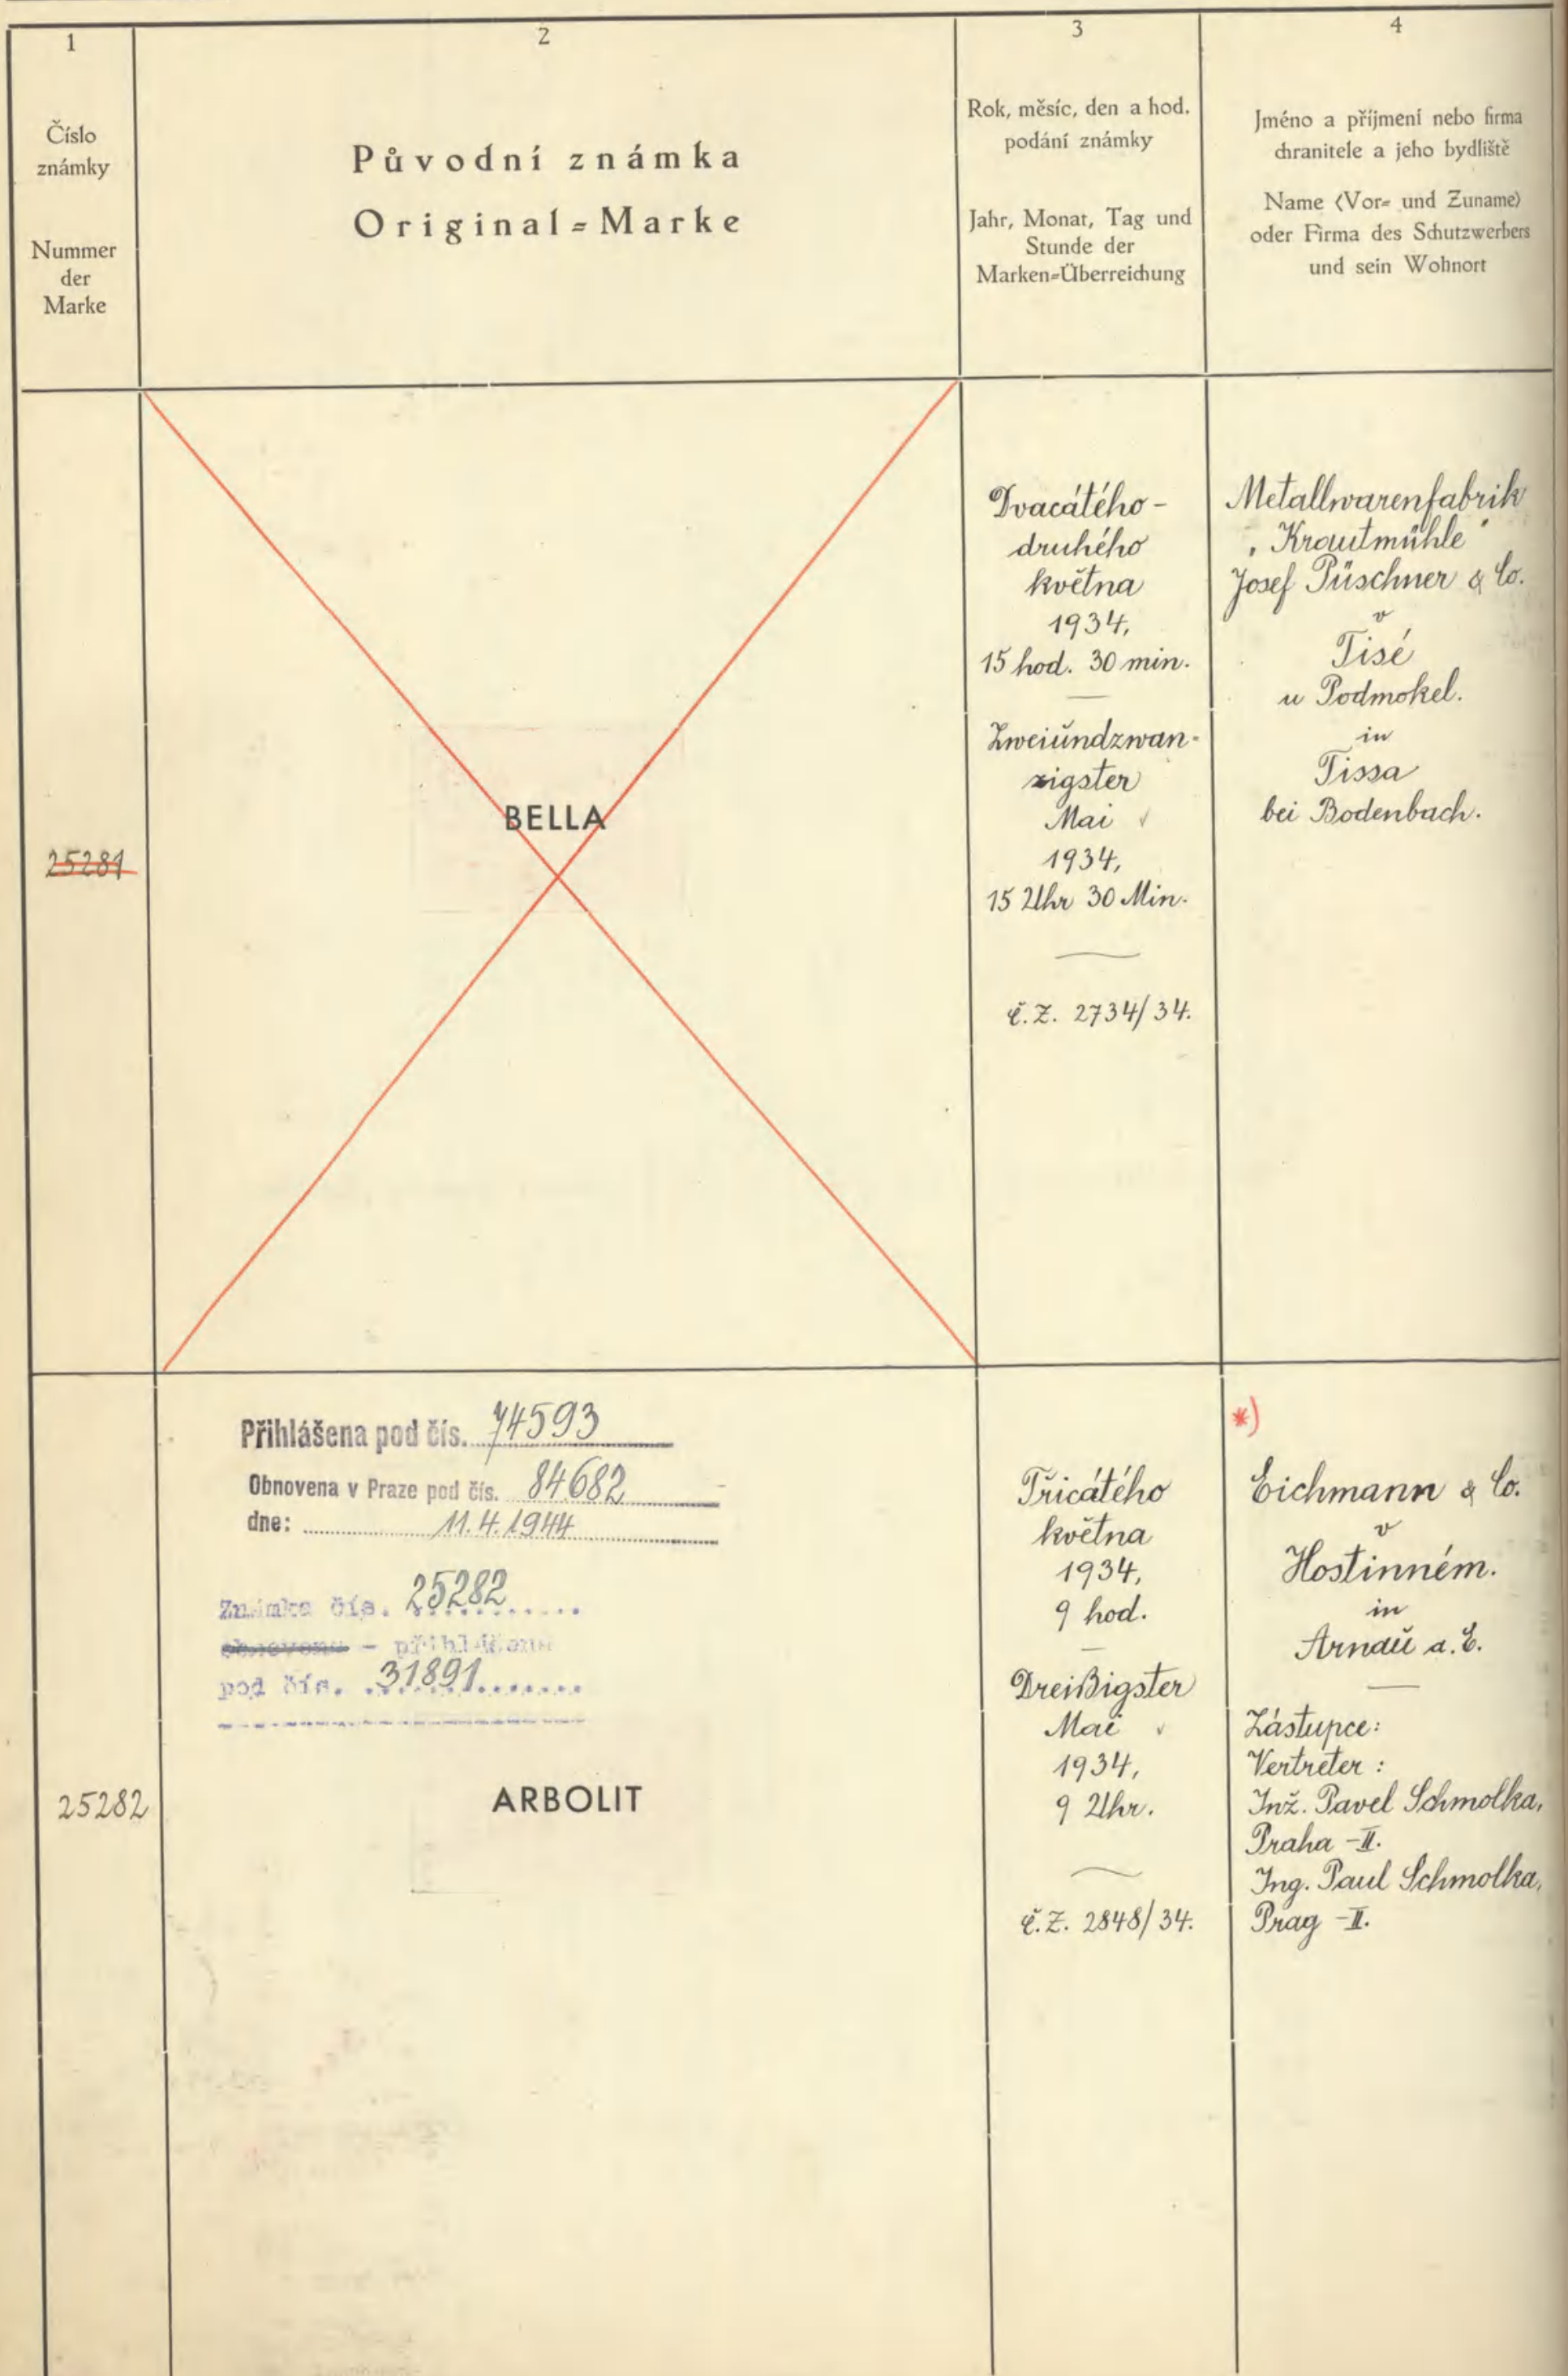 1
Číslo
známky
Nummer
der
Marke
2
Původní známka
Original-Marke
3
Rok, měsíc, den a hod.
podání známky
Jahr, Monat, Tag und
Stunde der
Marken-Überreichung
4
Jméno a příjmení nebo firma
chranitele a jeho bydliště
Name (Vor- und Zuname)
oder Firma des Schutzwerbers
und sein Wohnort
25281
BELLA
Dvacátého-
druhého
května
1934,
15 hod. 30 min.
Zweiundzwan-
zigster
Mai
1934,
15 Uhr 30 Min.
č.Z. 2734/34.
Metallwarenfabrik
„Krautmühle"
Josef Püschner & Co.
v
Tisé
u Podmokel.
in
Tissa
bei Bodenbach.
25282
Přihlášena pod čís. 74593
Obnovena v Praze pod čís. 84682
dne: 11.4.1944
Známka čís. 25282
obnovena - přihlášena
pod čís. 31891
ARBOLIT
Třicátého
května
1934,
9 hod.
Dreißigster
Mai
1934,
9 Uhr.
č.Z. 2848/34.
*)
Eichmann & Co.
v
Hostinném.
in
Arnau a.E.
Zástupce:
Vertreter:
Inž. Pavel Schmolka,
Praha-II.
Ing. Paul Schmolka,
Prag-II.